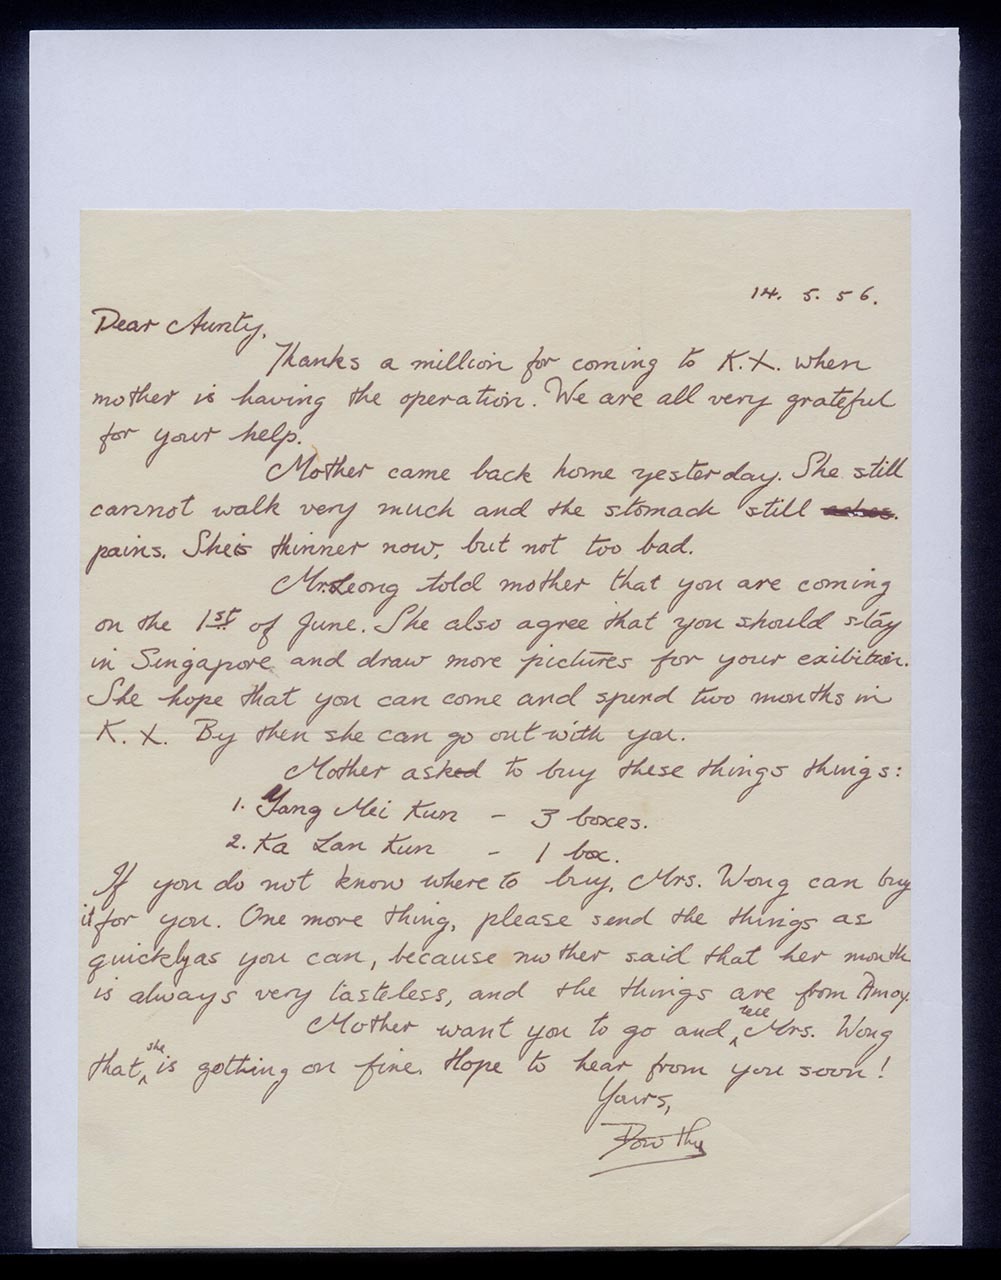 14. 5. 56.
Dear Aunty,
Thanks a million for coming to K.X. when
mother is having the operation. We are all very grateful
for your help.
Mother came back home yesterday. She still
cannot walk very much and the stomach still
pains. She is thinner now, but not too bad.
Mrs. Leong told mother that you are coming
on the 1st of June. She also agree that you should stay
in Singapore and draw more pictures for your exibition.
She hope that you can come and spend two months in
K. X. By then she can go out with you.
Mother asked to buy these things things:
1. Yang Mei Kun - 3 boxes.
2. Ka Lan Kun - 1 box.
If you do not know where to buy, Mrs. Wong can buy
it for you. One more thing, please send the things as
quickly as you can, because mother said that her mouth
is always very tasteless, and the things are from Amoy.
Mother want you to go and tell Mrs. Wong
that she is getting on fine. Hope to hear from you soon!
Yours,
Dorothy